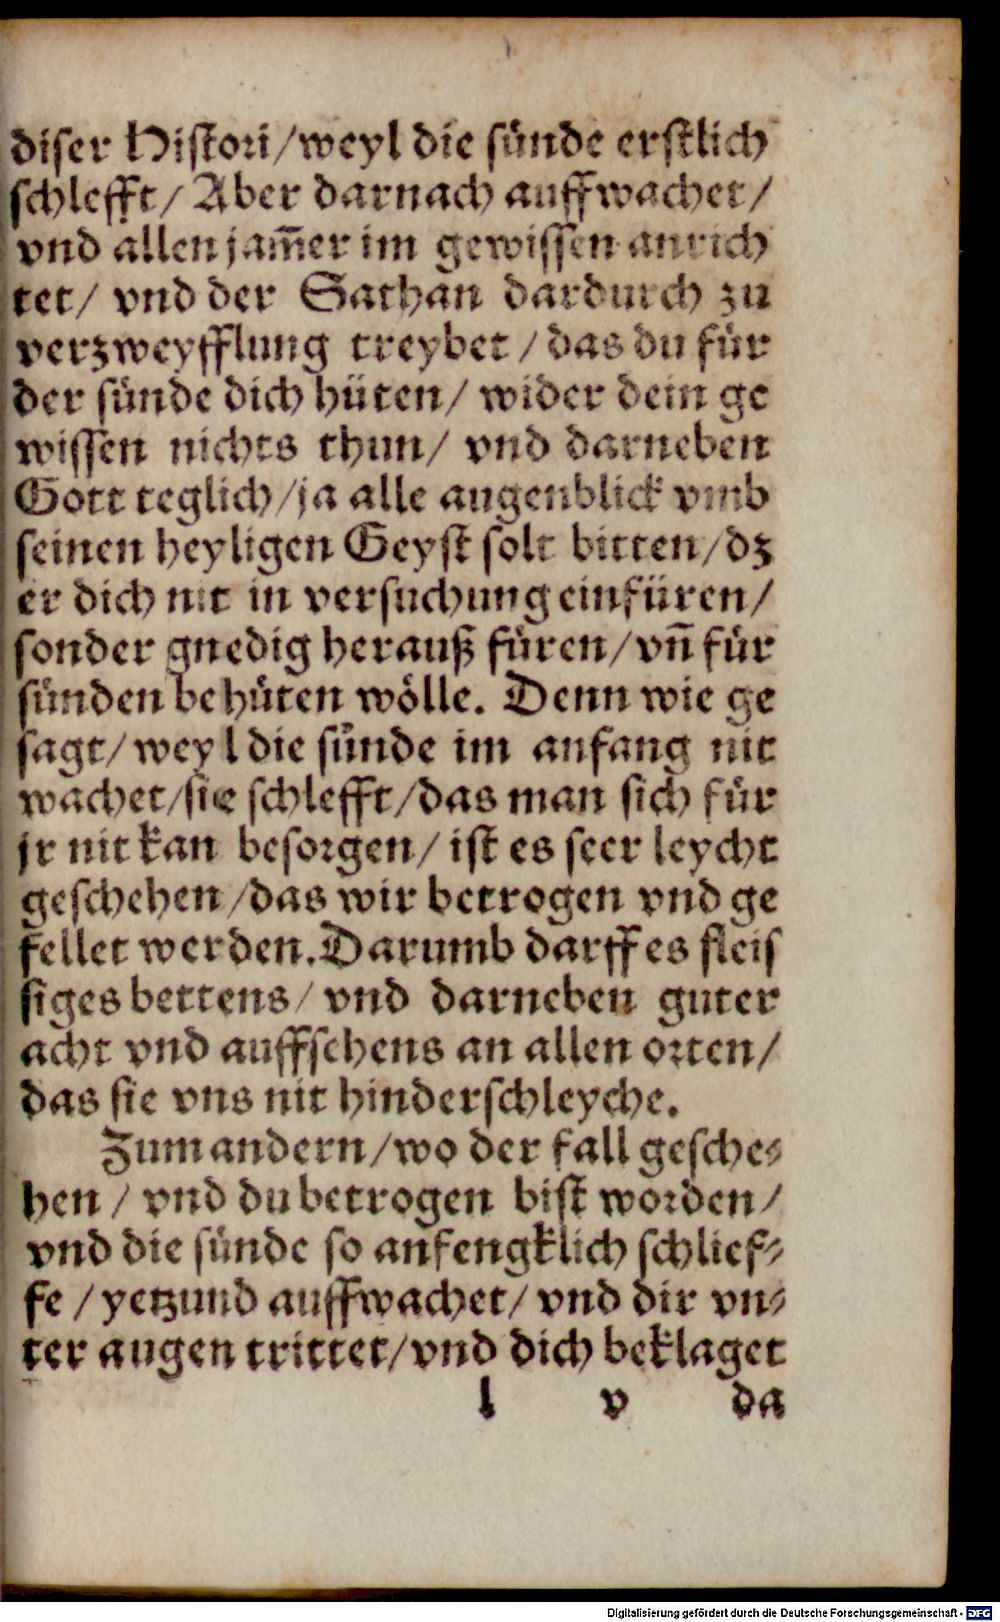 diser Histori/weyl die sünde erstlich
schlefft/ Aber darnach auffwachet/
vnd allen jam̃er im gewissen anrich
tet/ vnd der Sathan dardurch zu
verzweyfflung treybet/das du für
der sünde dich hüten/ wider dein ge
wissen nichts thun/ vnd darneben
Gott teglich/ja alle augenblick vmb
seinen heyligen Geyst solt bitten/dz
er dich nit in versuchung einfüren/
sonder gnedig herauß füren/vñ für
sünden behüten wölle. Denn wie ge
sagt/weyl die sünde im anfang nit
wachet/sie schlefft/das man sich für
jr nit kan besorgen/ist es seer leycht
geschehen/das wir betrogen vnd ge
fellet werden.Darumb darff es fleis
siges bettens/ vnd darneben guter
acht vnd auffsehens an allen orten/
das sie vns nit hinderschleyche.
Zum andern/wo der fall gesche⸗
hen/ vnd du betrogen bist worden/
vnd die sünde so anfengklich schlief⸗
fe/yetzund auffwachet/vnd dir vn⸗
ter augen trittet/vnd dich beklaget
l v da
Digitalisierung gefördert durch die Deutsche Forschungsgemeinschaft - DFG